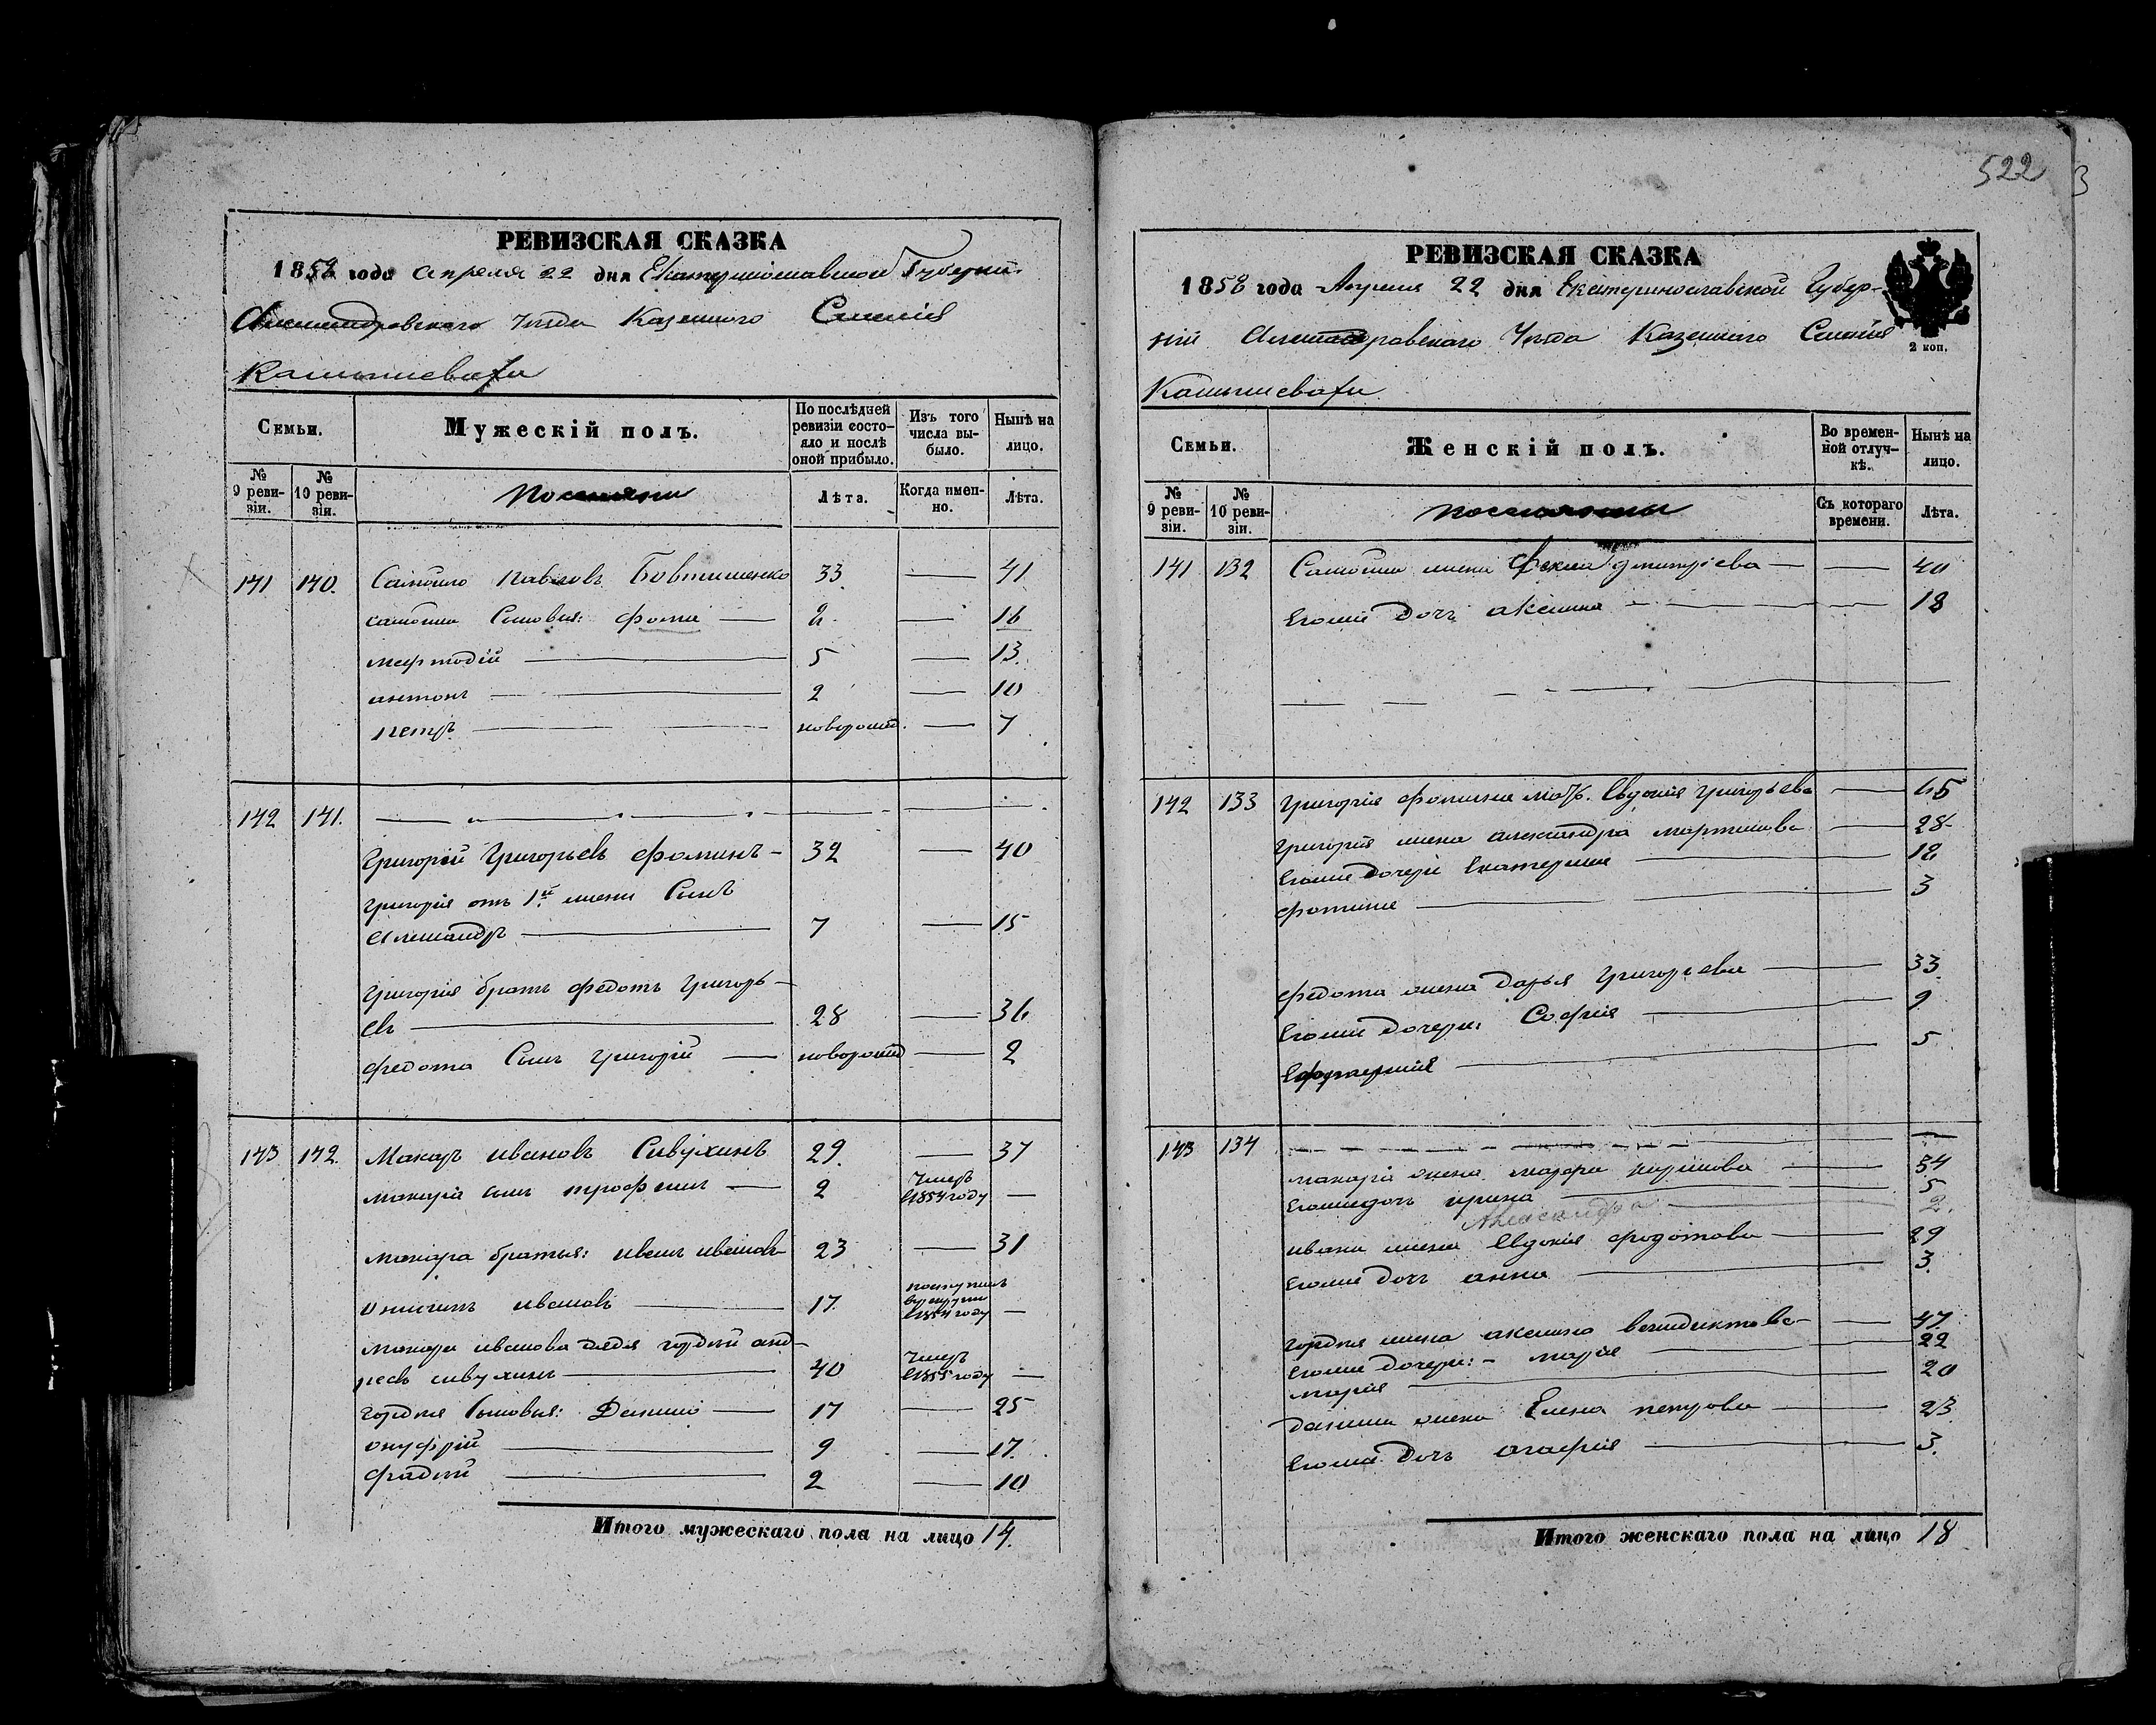 522
РЕВИЗСКАЯ СКАЗКА
1858 года апреля 22 дня Екатеринославской Губернии
Александровского Уезда Казенного Селения
Камышевахи
Семьи.
Мужескій полъ.
По послѣдней ревизіи состояло и послѣ оной прибыло.
Изъ того числа выбыло.
Нынѣ на лицо.
№ 9 ревизіи.
№ 10 ревизіи.
Поселяни
Лѣта.
Когда именно.
Лѣта.
141 140. Самойло Павловъ Бовтишенко 33 — 41
самойла Сыновья: фома — — 16
мефтодій — 5 — 13
антонъ — 2 — 10
петръ — новорожд. — 7
142 141.
Григорій Григорьевъ фоминъ — 32 — 40
григорія отъ 1й жены Сынъ
Александръ — 7 — 15
григорія братъ федотъ григорь-
евъ — 28 — 36
федота Сынъ григорій — новорожд — 2
143 142. Макаръ ивановъ Сивухинъ 29. — 37
макаріа сынъ трофимъ — 2 Умеръ в 1854 году —
макара братья: иванъ ивановъ 23 — 31
онисимъ ивановъ — 17 поступилъ в 1854 году —
макара иванова дядя гордей анд-
реевъ сивухинъ — 40 Умеръ в 1855 году —
гордея Сыновья: Данило — 17 — 25
онуфрій — 9 — 17.
фадей — 2 — 10
Итого мужескаго пола на лицо 14.
РЕВИЗСКАЯ СКАЗКА
1858 года Апреля 22 дня Екатеринославской Губер-
ній Александровского Уезда Казенного Селения
2 коп.
Камышевахи
Семьи.
Женскій полъ.
Во временной отлучкѣ.
Нынѣ на лицо.
№ 9 ревизіи.
№ 10 ревизіи.
поселянки
Съ котораго времени.
Лѣта.
141 132 Самойла жена Фекла дмитріева — — 40
Егоже дочь аксинья — 18
142 133 григорія фомина мать Евдокия григорьева — 65
григорія жена александра мартинова — 28
Егоже дочери Екатерина — 12
фотинія — 3
федота жена дарья григорьева — 33
Егоже дочери: Софія — 9
— 5
143 134
макаріа жена — 34
Егоже дочь ирина — 5
Александра — 2.
ивана жена Евдокия федотова — 29
Егоже дочь анна — 3.
гордея жена аксинья венидиктова — 47
Егоже дочери: — марія — 22
марія — 20
данила жена Елена петрова — 23
Егоже дочь агафия — 3.
Итого женскаго пола на лицо 18